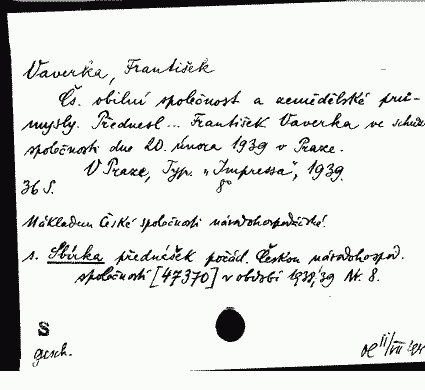 Vaverka, František
Čs. obilní společnost a zemědělské prů-
mysly. Přednesl ... František Vaverka ve schůzi
společnosti dne 20. února 1939 v Praze.
V Praze, Typ. "Impressa", 1939.
36 S. 8°
Nákladem České společnosti národohospodářské.
s. Sbírka přednášek pořád. Českou národohospod.
společností [47370] v období 1938/39 Nr. 8.
S
gesch.
II/VII